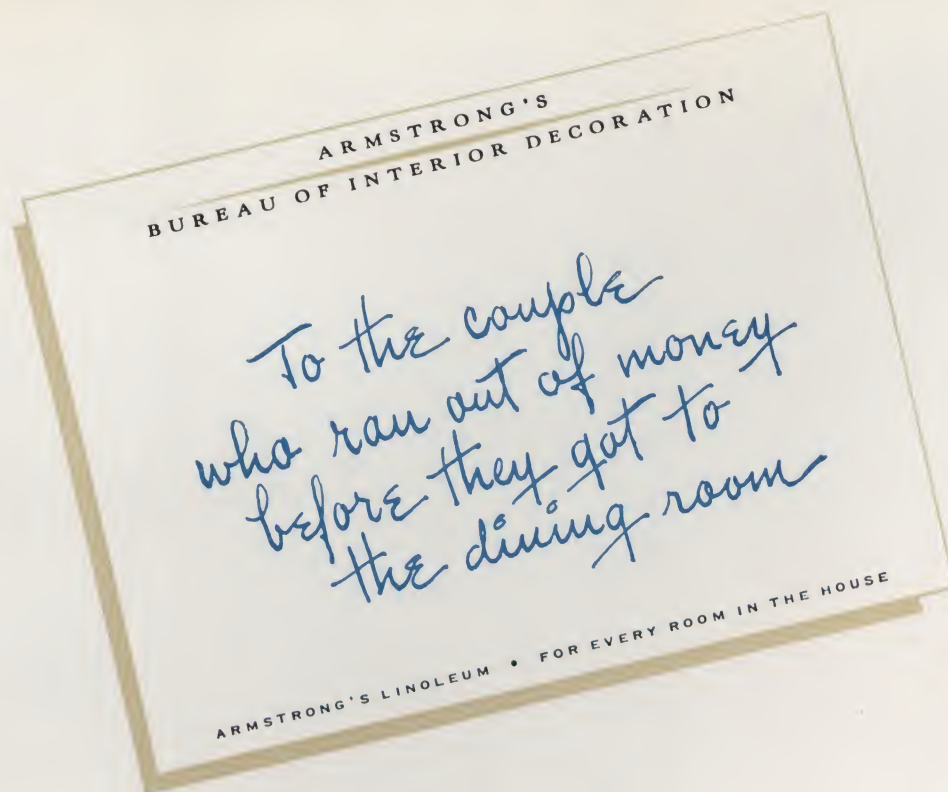 ARMSTRONG'S
BUREAU OF INTERIOR DECORATION
To the couple
who ran out of money
before they got to
the dining room
ARMSTRONG'S LINOLEUM • FOR EVERY ROOM IN THE HOUSE